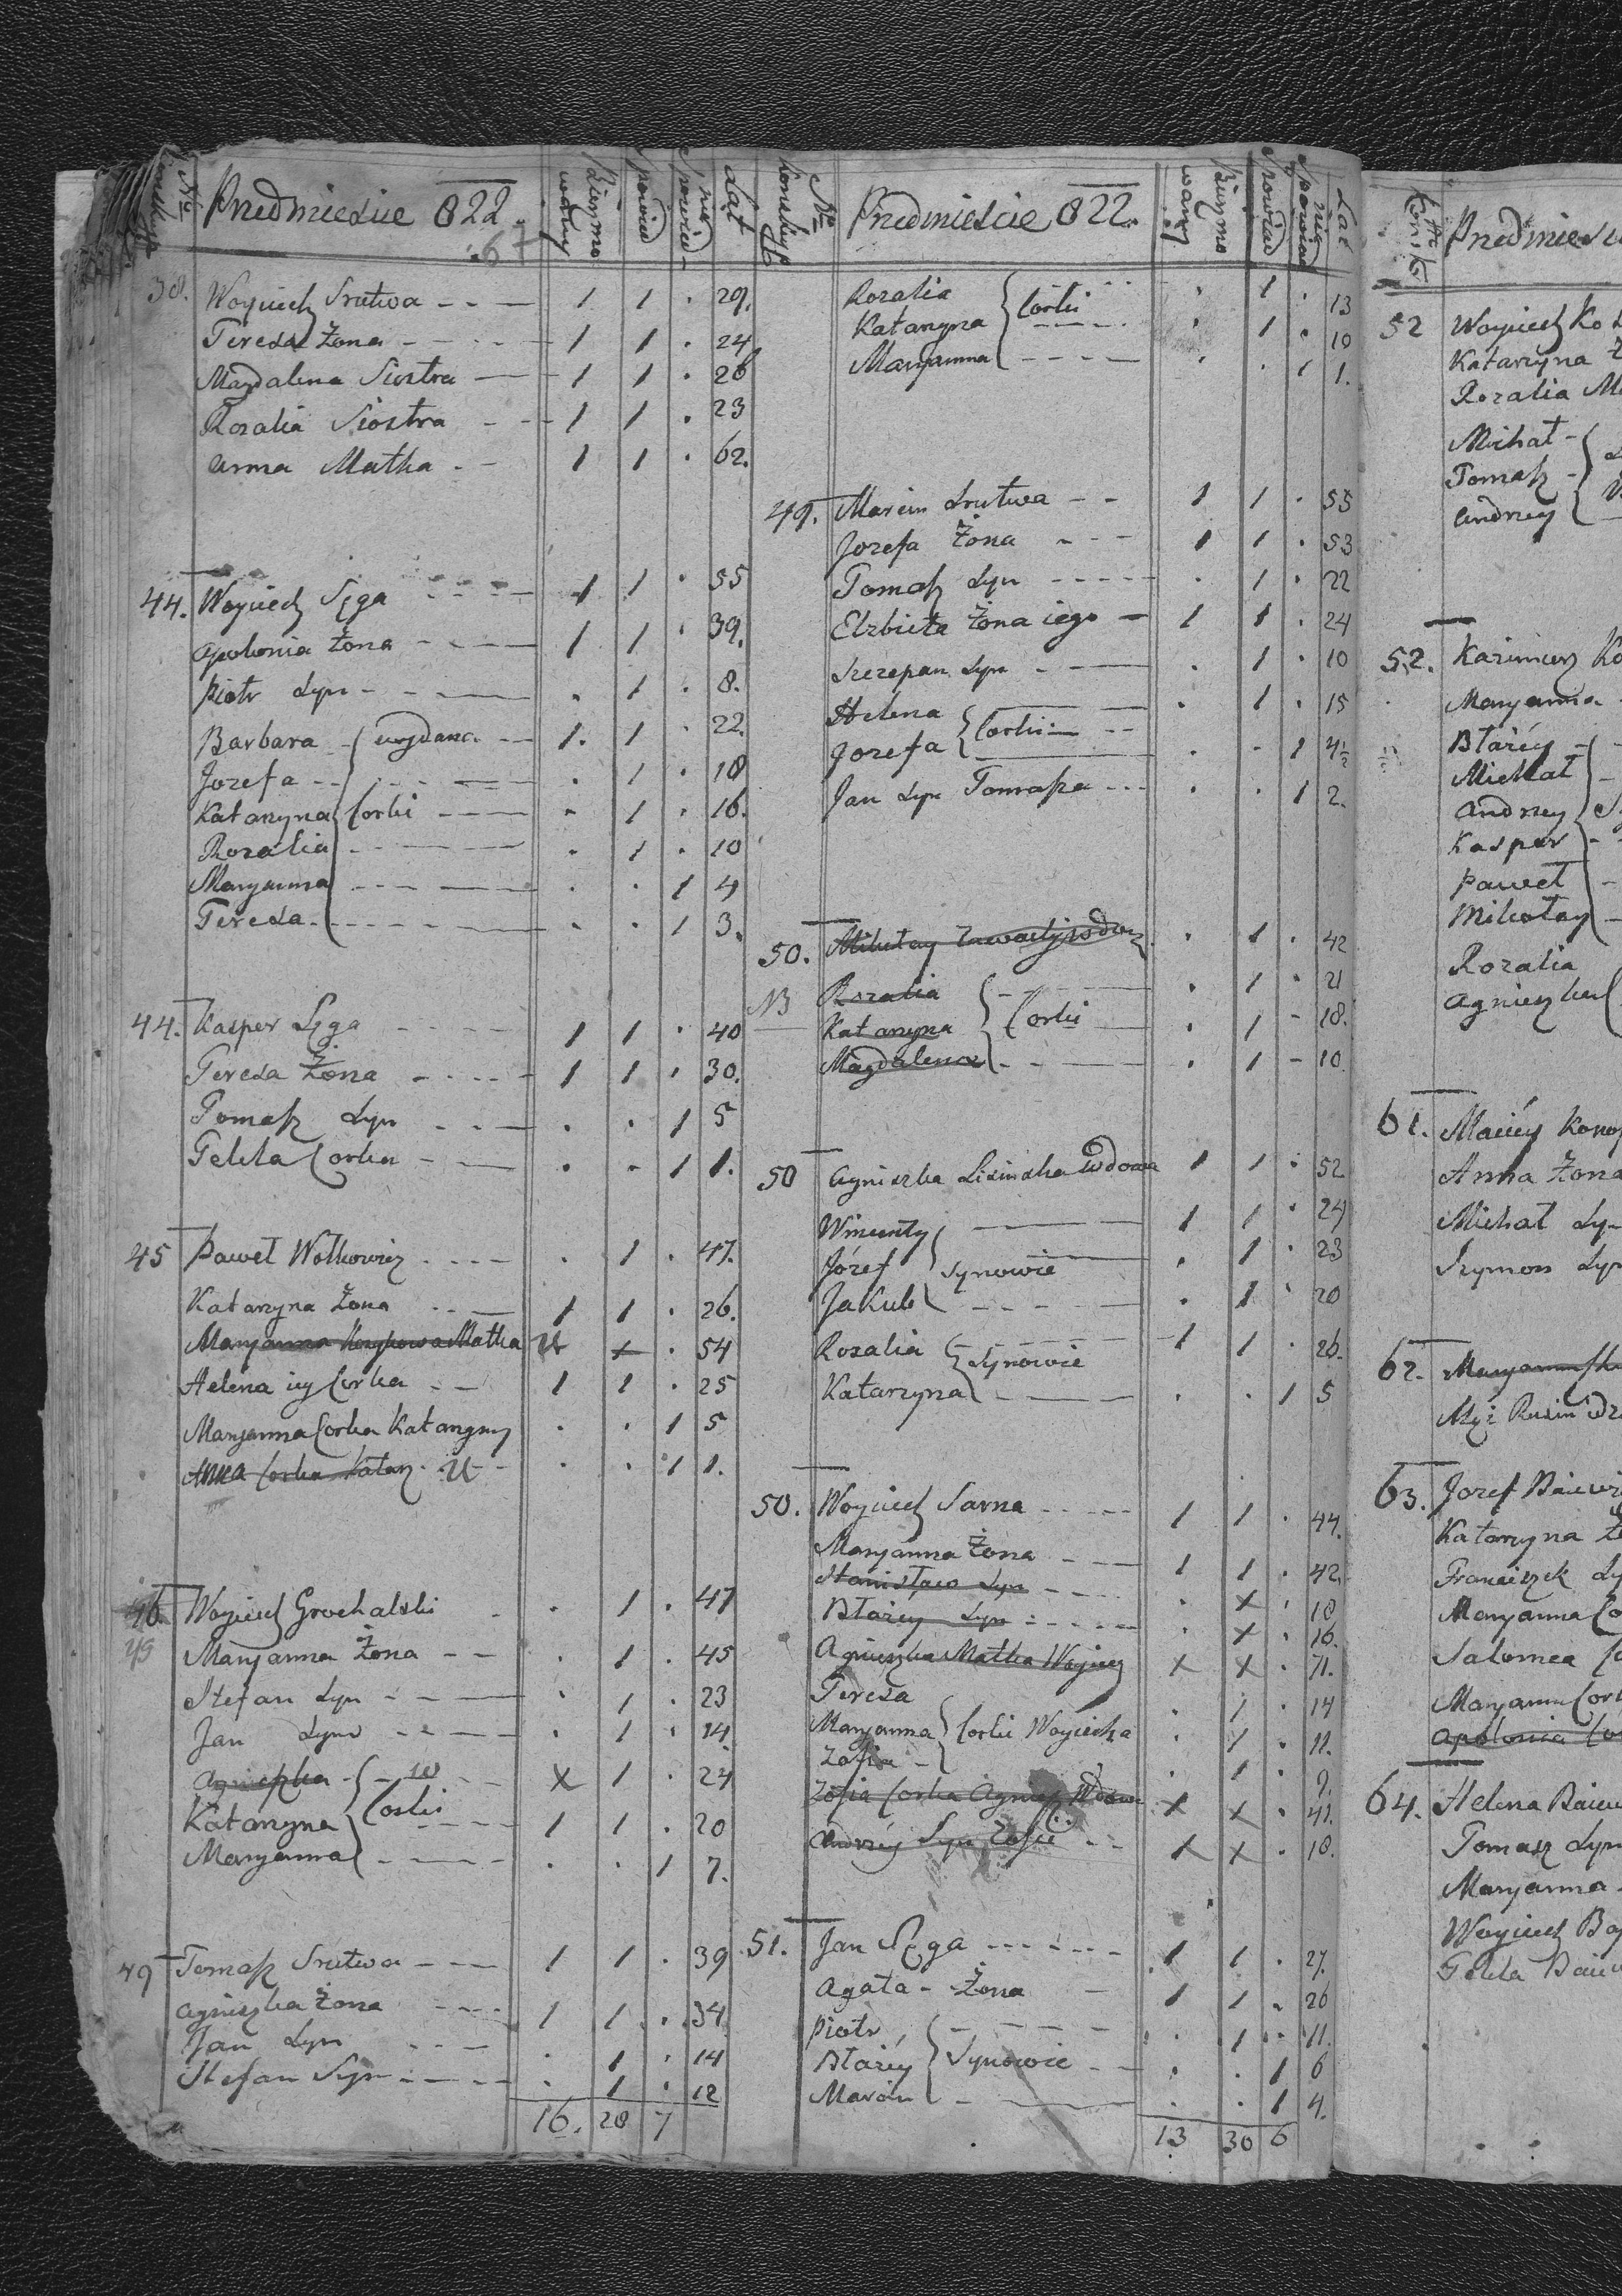 No
Przedmieście 822.
Bierzmowany
Spowied
nie Spowied
Lat
38. Woyciech Srutwa - - — 1 1 . 29.
Teresa Żona - - - — 1 1 . 24
Magdalena Siostra — 1 1 . 26
Rozalia Siostra - - 1 1 . 23
Anna Matka - - 1 1 . 62.
44. Woyciech Sęga - - - - 1 1 . 55
Apolonia Żona - - — 1 1 . 39.
Piotr Syn - - - — . 1 . 8.
Barbara - wydana - — 1. 1 . 22.
Jozefa - - - - - — . 1 . 18
Katarzyna Corki - - — . 1 . 16.
Rozalia - - - — . 1 . 10
Maryanna - - - — . . 1 4
Teresa - - - - — . . 1 3.
44. Kasper Sęga - - - - 1 1 . 40
Teresa Żona - - - - 1 1 . 30.
Tomasz Syn - - — . . 1 5
Tekla Corka - — . . 1 1.
45 Paweł Wolkowicz - - - - . 1 . 47.
Katarzyna Żona - - — 1 1 . 26.
Maryanna Matka U x . 54
Helena iey Corka - — 1 1 . 25
Maryanna Corka Katarzyny . . 1 5
Anna Corka Katarz. U - . . 1 1.
46. Woyciech Grochalski . . 1 . 47
49 Maryanna Żona - - . 1 . 45
Stefan Syn - - — . 1 . 23
Jan Syn - - - — . 1 . 14
Agnieszka - - - x 1 . 24
Katarzyna Corki - - - 1 1 . 20
Maryanna - - — . . 1 7.
49 Tomasz Srutwa - - — 1 1 . 39
Agnieszka Żona - - - 1 1 . 34
Jan Syn - - - . 1 . 14
Stefan Syn - - - - . 1 . 12
16. 28 7
No
Przedmieście 822.
Bierzmowany
Spowied
nie Spowied
Lat
Rozalia - - . 1 . 13
Katarzyna Corki - - - . 1 . 10
Maryanna - - - — . . 1 1.
49. Marcin Srutwa - - 1 1 . 55
Jozefa Żona - - - 1 1 . 53
Tomasz Syn - - - - . 1 . 22
Elzbieta Żona iego — 1 1 . 24
Szczepan Syn - - — . 1 . 10
Helena — . 1 . 15
Jozefa Corki — - - . . 1 4½
Jan Syn Tomasza - - - . . 1 2.
50. Mikołay . 1 . 42
NB Rozalia - — . 1 . 21
Katarzyna Corki — . 1 - 18.
Magdalena - - — . 1 - 10
50 Agniszka Lisinska Wdowa 1 1 . 52
Wincenty — 1 1 . 24
Józef Synowie — . 1 . 23
Jakub - - - — . 1 . 20
Rozalia Synowie - - - 1 1 . 26.
Katarzyna - — . . 1 5
50. Woyciech Sarna - - - - 1 1 . 44.
Maryanna Żona - — 1 1 . 42.
Stanisław Syn - - - . x . 18
Błażey Syn - - - - . x . 16.
Agnieszka Matka Woyciech x x . 71.
Teresa . 1 . 14
Maryanna Corki Woyciecha . 1 . 11.
Zofia - . 1 . 9.
Zofia Corka Agniesz. Wdowa x x . 41.
Andrzéy Syn Zofii - - x x . 18.
51. Jan Sęga - - - - - 1 1 . 27.
Agata - Żona - 1 1 . 26
Piotr - - - - . 1 . 11.
Błażéy Synowie - - . . 1 6
Marcin - — . . 1 4.
13 30 6
No
Przedmieści
52 Woyciech Ko
Katarzyna
Rozalia
Michał -
Tomasz -
Andrzey
52. Kazimierz
Maryanna
Błażéy -
Michał -
Andrzey
Kasper -
Paweł -
Mikołay -
Rozalia
Agnieszka
61. Maciéy
Anna Żona
Michał Sy
Szymon Syn
62. Maryanna
Mąż
63. Jozef
Katarzyna
Franciszek Sy
Maryanna Co
Salomea
Maryanna Cor
Apolonia Co
64. Helena
Tomasz Syn
Maryanna
Woyciech
Tekla